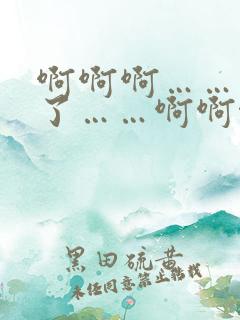 啊啊啊……
了……啊啊
黑田硫黄
未经同意禁止转载